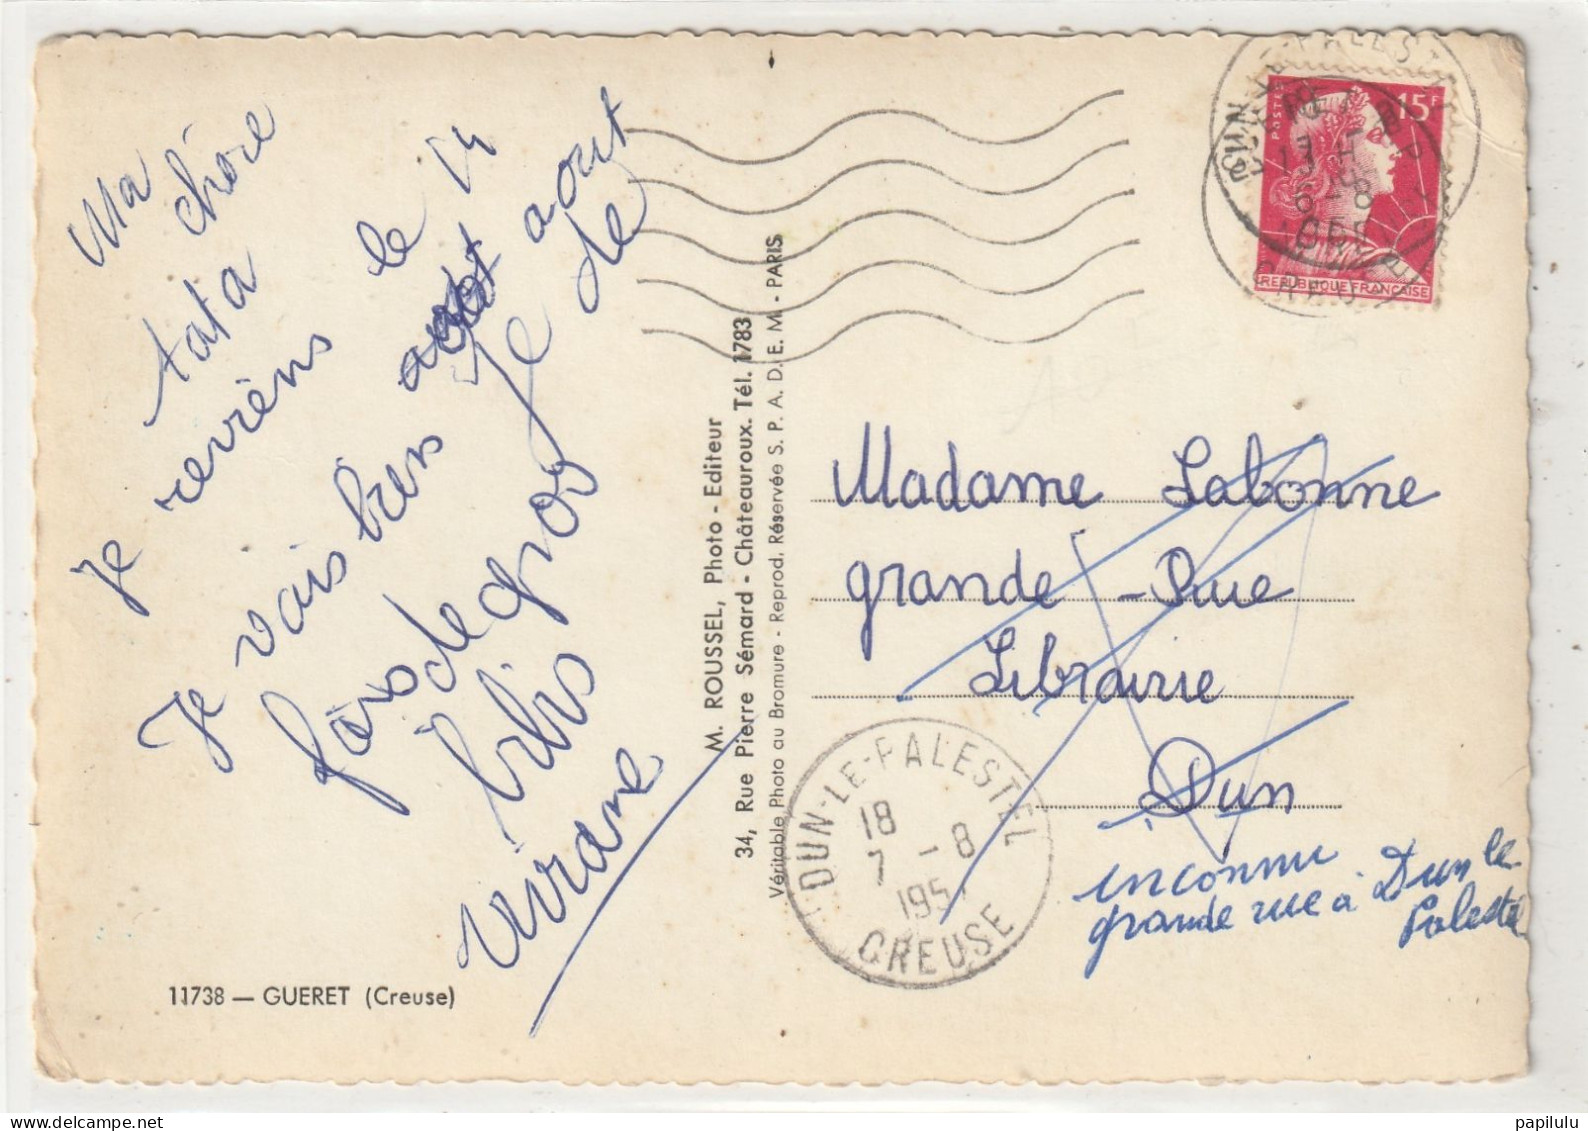 Ma chère
tata
Je reviens le 14
août
Je vais bien Je te
fais de gros
bibis
Viviane
11738 — GUERET (Creuse)
M. ROUSSEL, Photo - Editeur
34, Rue Pierre Sémard - Châteauroux. Tél. 1783
Véritable Photo au Bromure - Reprod. Réservée S. P. A. D. E. M. - PARIS
POSTES 15F
REPUBLIQUE FRANÇAISE
Madame Labonne
grande - Rue
Librairie
Dun
inconnu
grande rue à Dun le
Palestel
DUN-LE-PALESTEL
18
7 - 8
195
CREUSE
papilulu